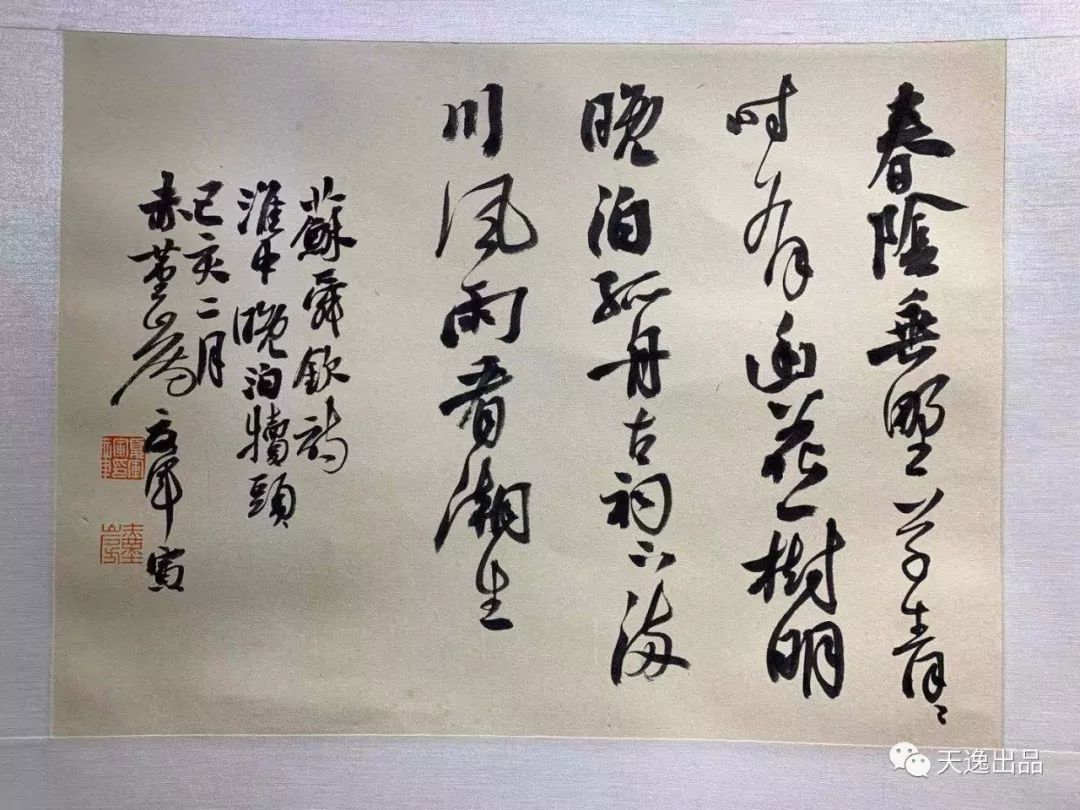 春陰垂野草青〻
时有幽花一樹明
晚泊孤舟古祠下满
川風雨看潮生
蘇舜欽詩
淮中晚泊犢頭
己亥二月
赤堇山房
天逸出品